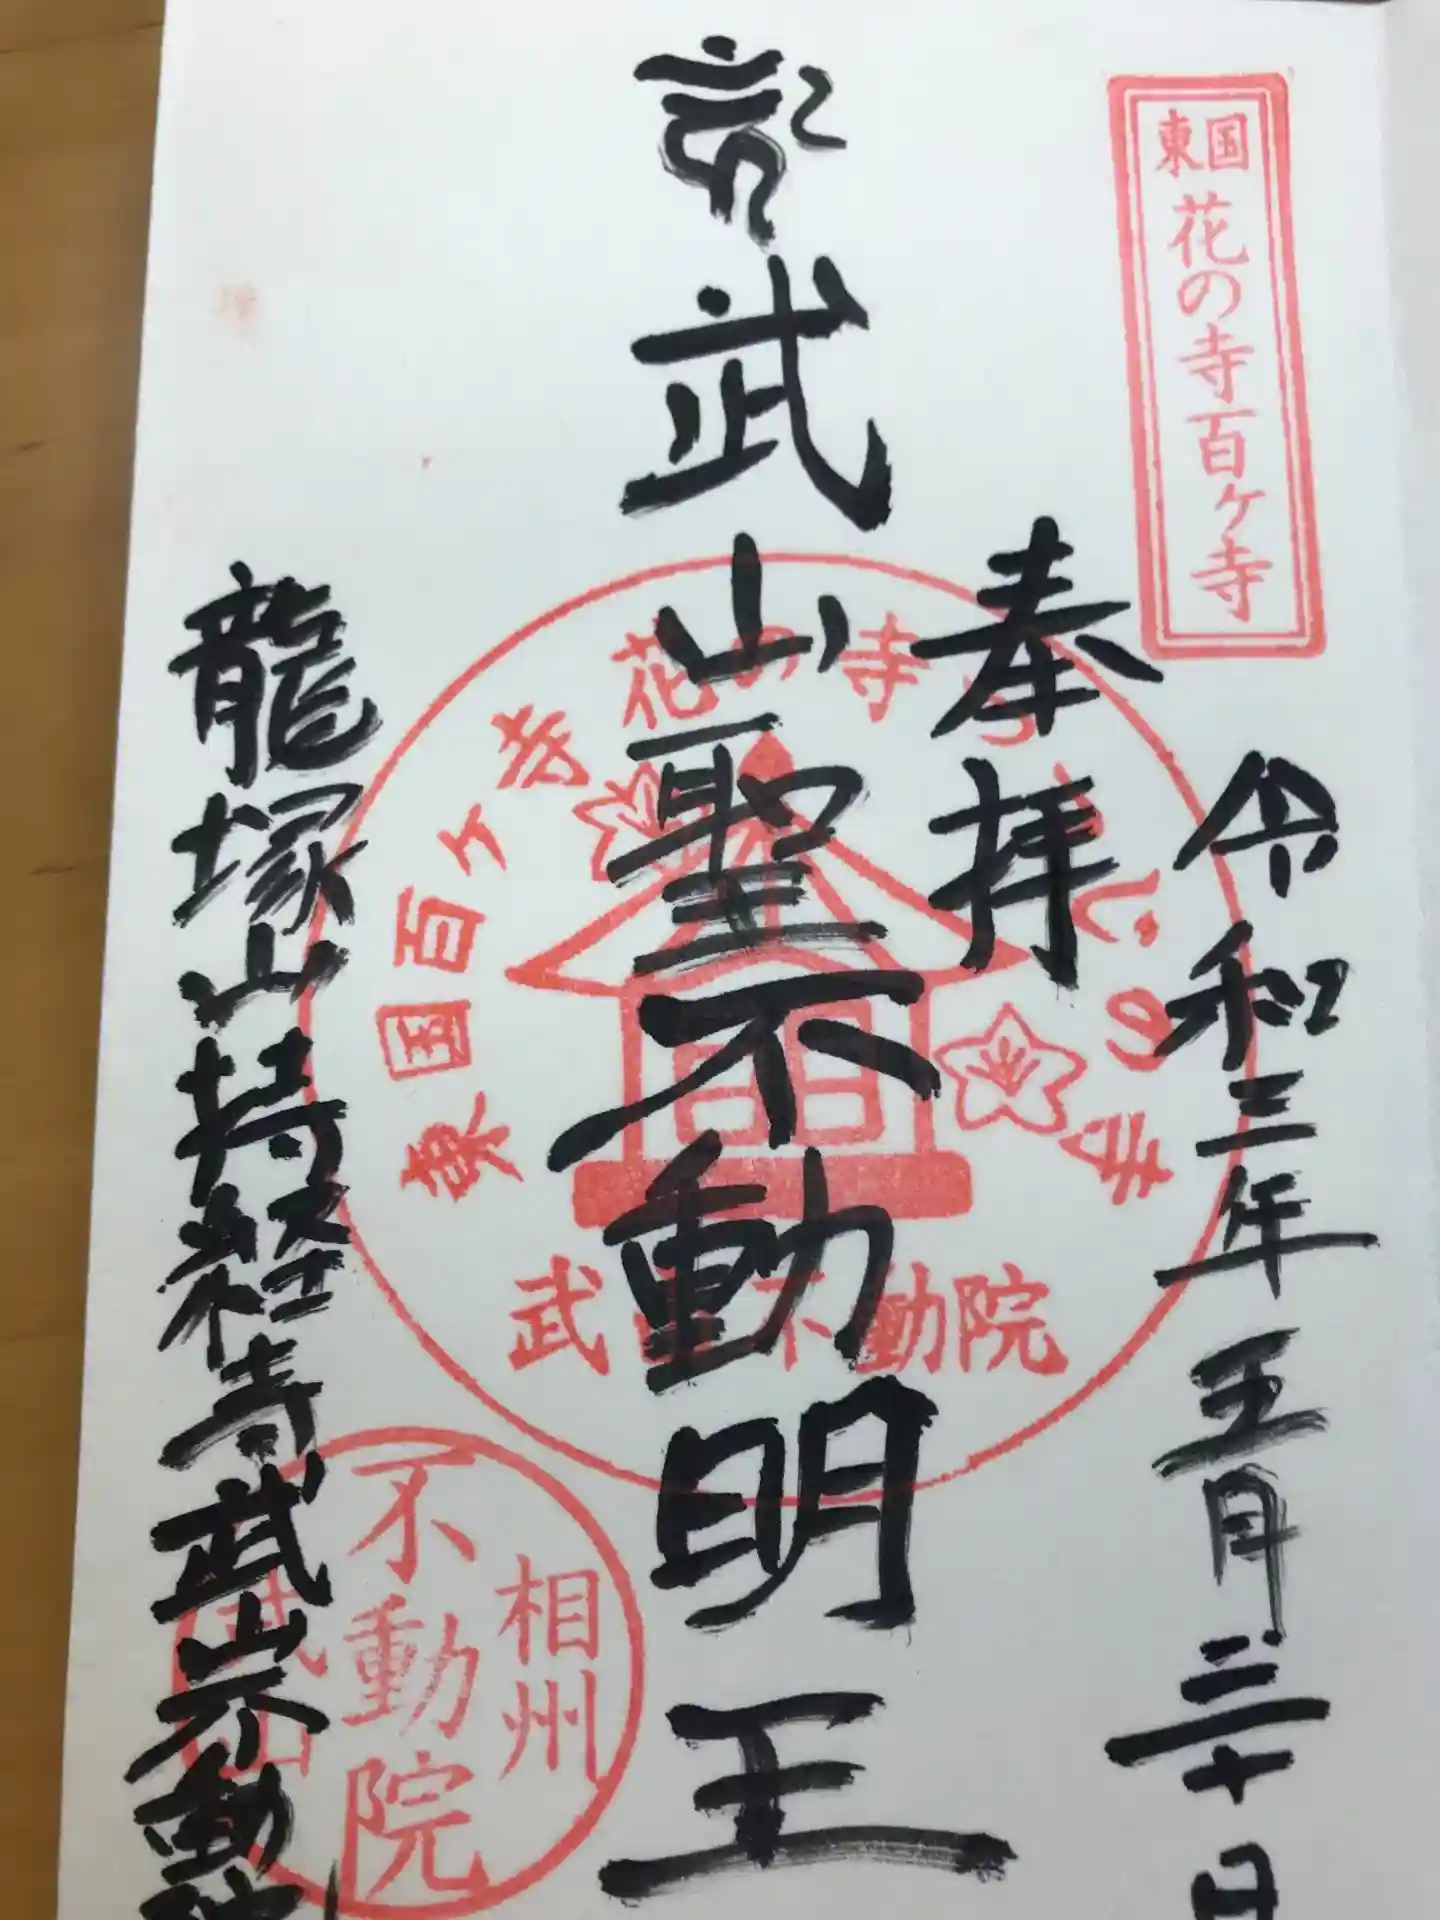 東国
花の寺百ヶ寺
令和三年五月三十日
奉拝
武山聖不動明王
龍塚山持経寺武山不動院
東国百ヶ寺 花の寺
寺
武山不動院
相州
武山
不動院